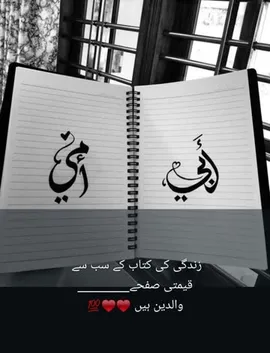 أبي
أمي
زندگی کی کتاب کے سب سے
قیمتی صفحے__________
والدین ہیں ❤️❤️💯